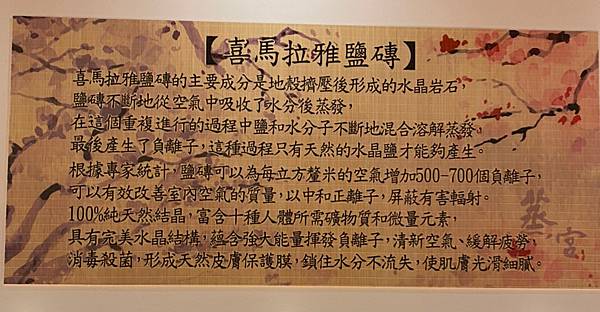 【喜馬拉雅鹽磚】
喜馬拉雅鹽磚的主要成分是地殼擠壓後形成的水晶岩石,
鹽磚不斷地從空氣中吸收了水分後蒸發,
在這個重複進行的過程中鹽和水分子不斷地混合溶解蒸發。
最後產生了負離子,這種過程只有天然的水晶鹽才能夠產生。
根據專家統計,鹽磚可以為每立方釐米的空氣增加500-700個負離子,
可以有效改善室內空氣的質量,以中和正離子,屏蔽有害輻射。
100%純天然結晶,富含十種人體所需礦物質和微量元素,
具有完美水晶結構,蘊含強大能量揮發負離子,清新空氣、緩解疲勞,
消毒殺菌,形成天然皮膚保護膜,鎖住水分不流失,使肌膚光滑細膩。
蒸宮